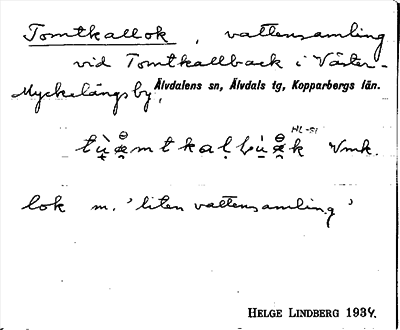 Tomtkallok, vattensamling
vid Tomtkallback i Väster-
Myckelängsby, Älvdalens sn, Älvdals tg, Kopparbergs län.
HL-SI
Vmk.
lok m. 'liten vattensamling'
HELGE LINDBERG 1934.